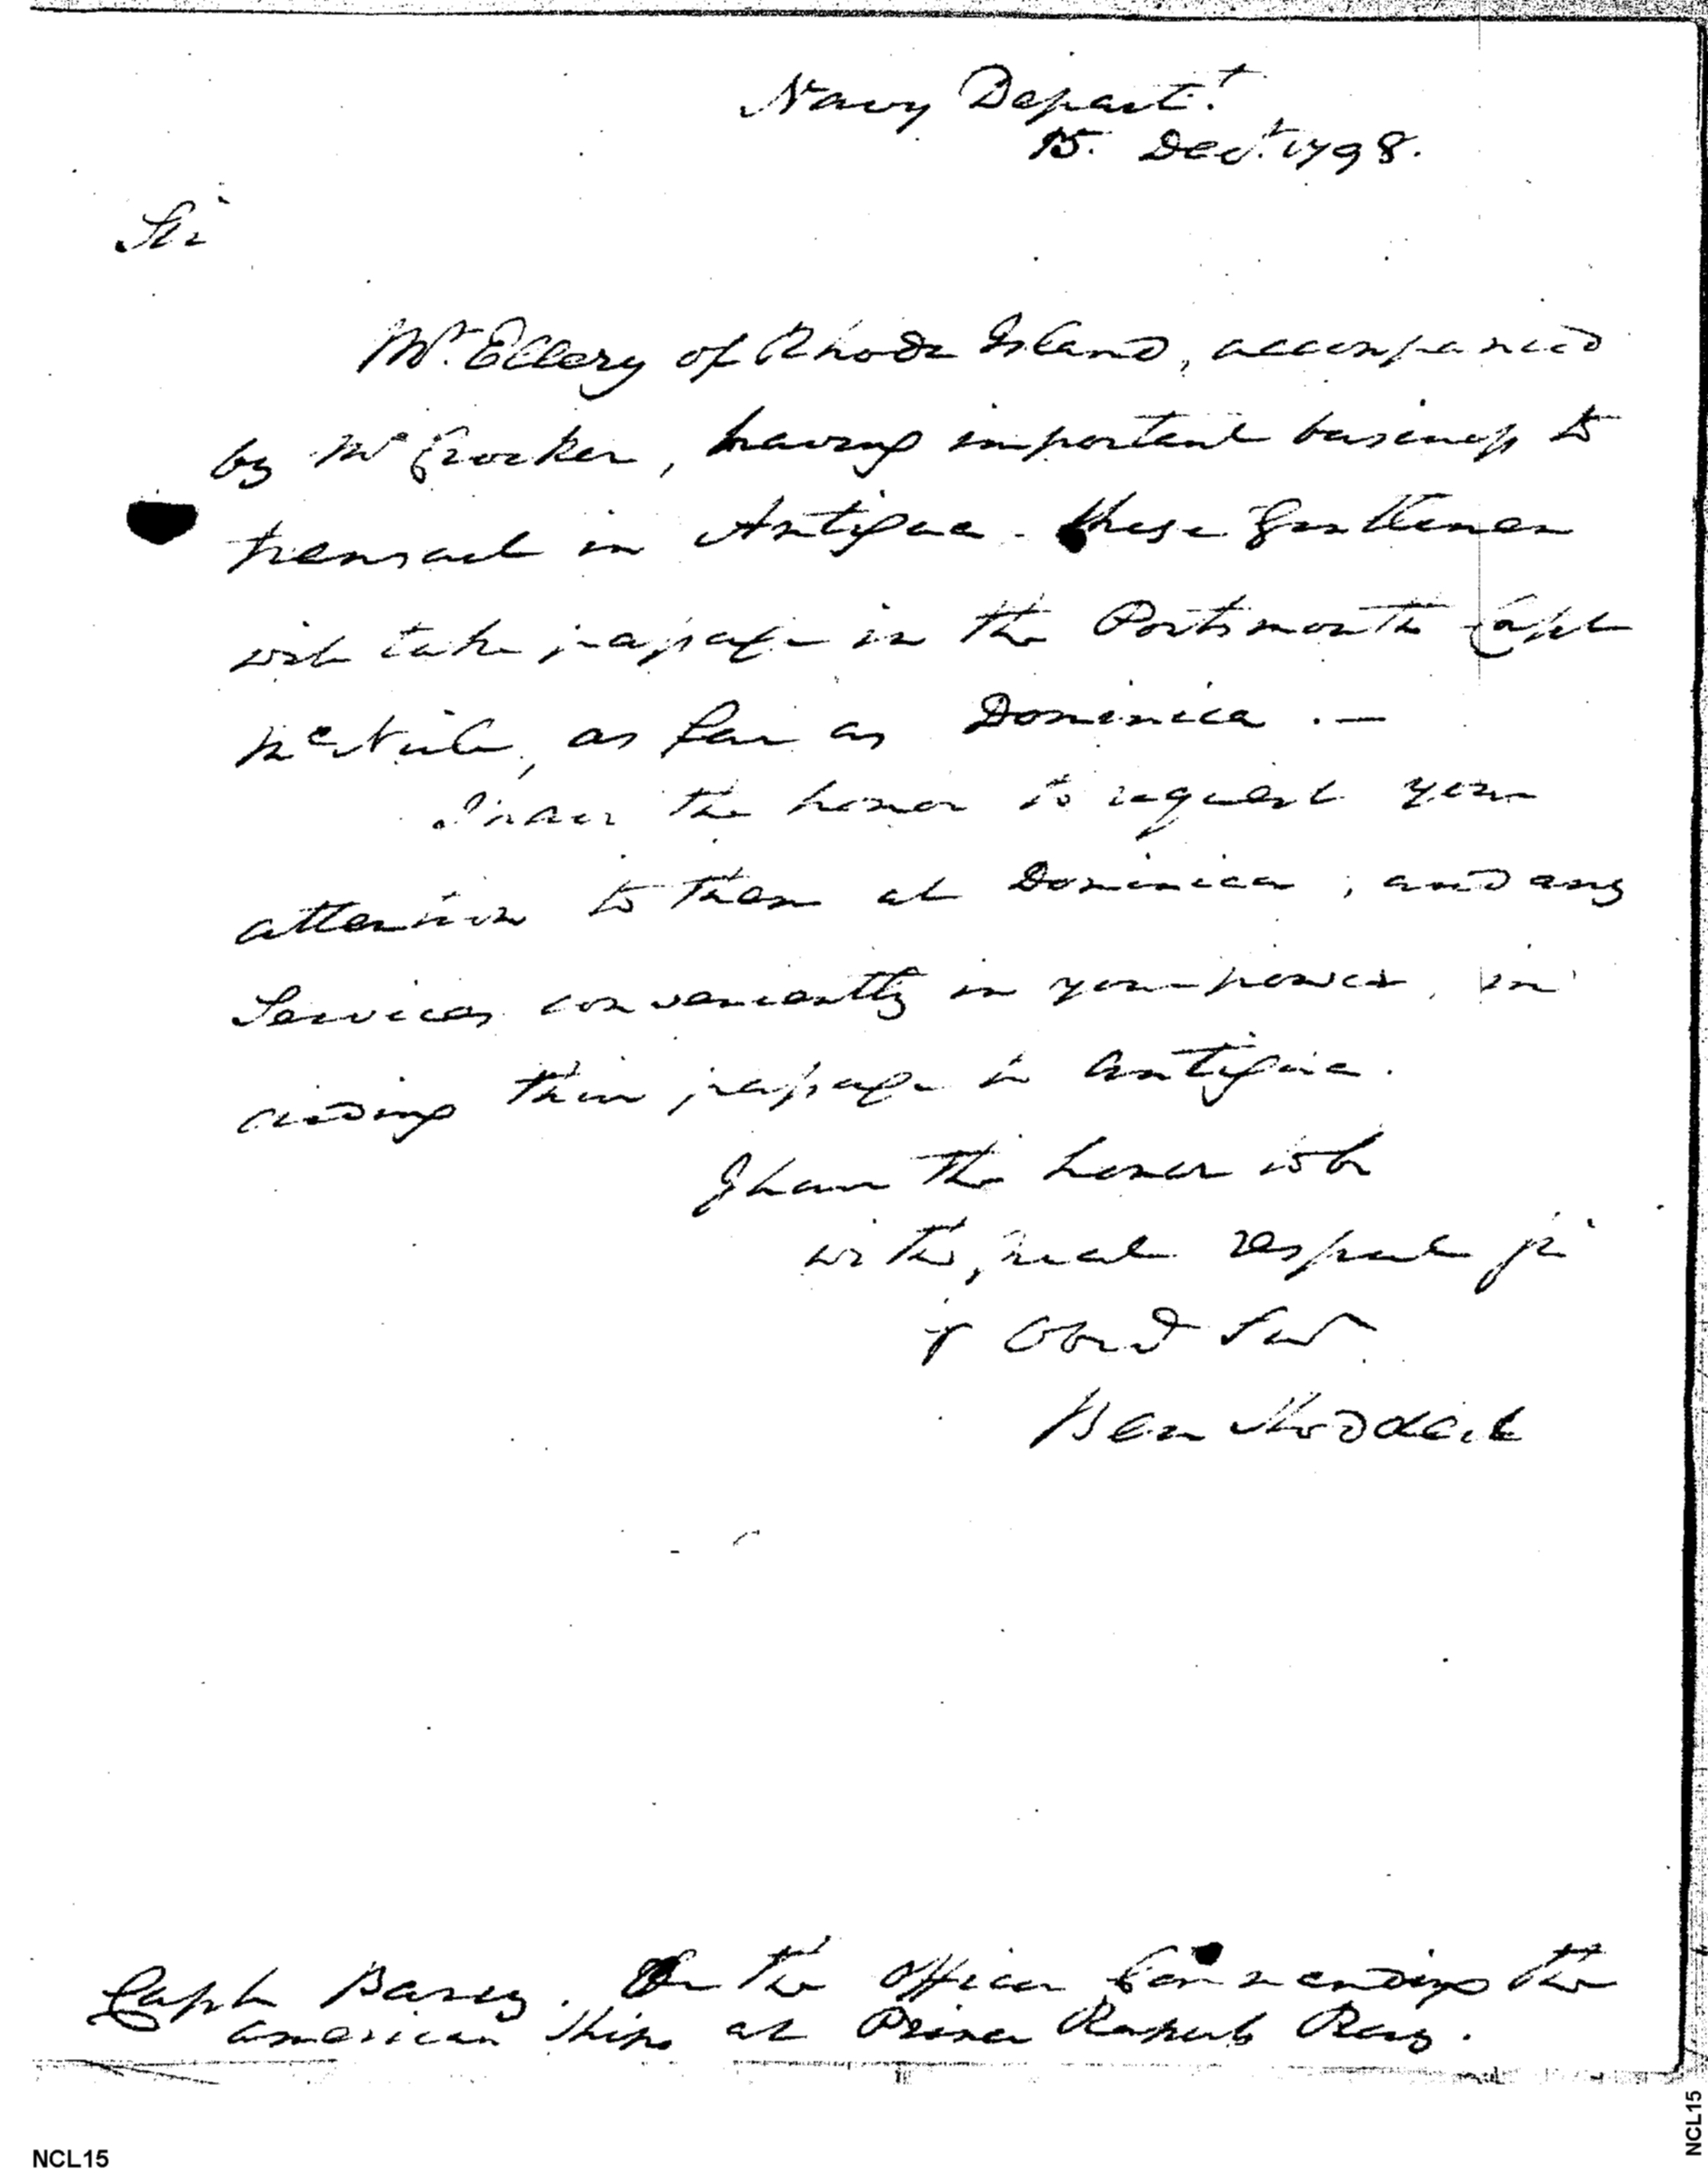 Navy Depart.t
15. Decr. 1798.
Sir
Mr. Ellery of Rhode Island, accompanied
by Mr Crocker, having important business to
transact in Antigua. these Gentlemen
will take passage in the Portsmouth Capt
McNeile, as far as Dominica. —
I have the honor to request your
attention to them at Dominica, and any
Services conveniently in your power, in
aiding their passage to Antigua.
I have the honor to be
with great respect Sir
yr Obed Servt
Ben Stoddert
Capt Barry. Or the Officer Commanding the
American Ships at Prince Ruperts Bay.
NCL15
NCL15